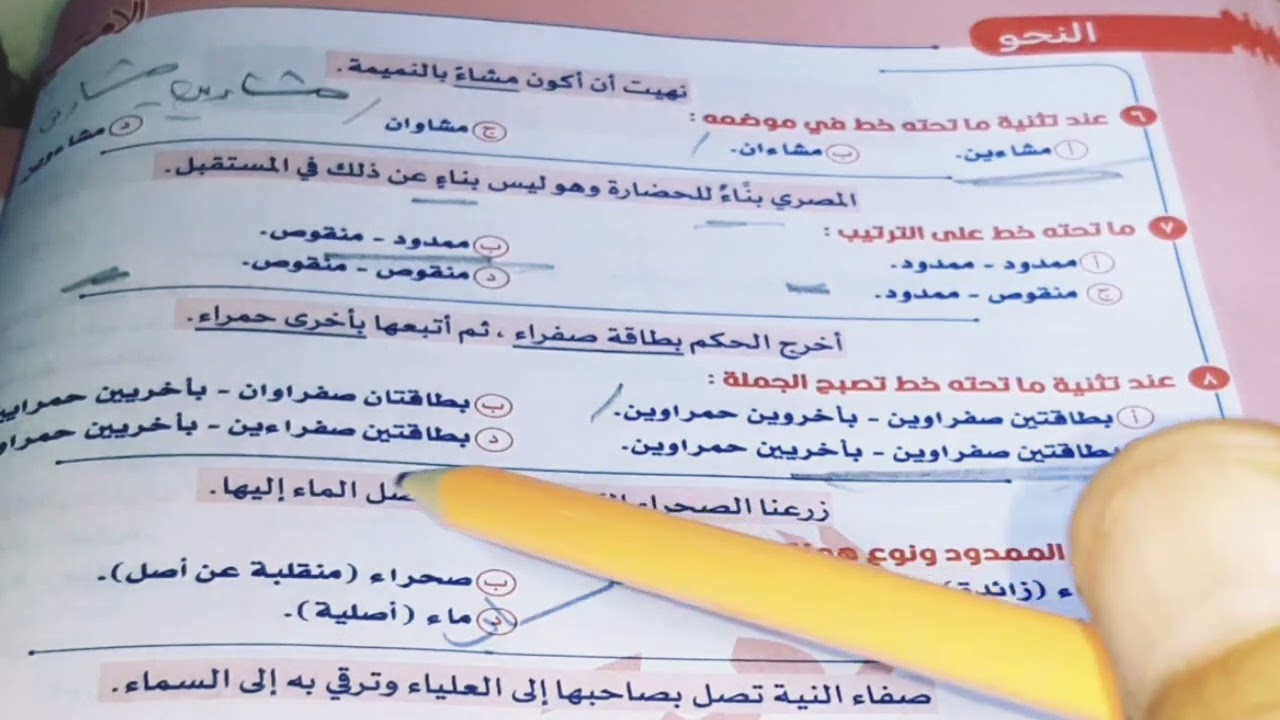 النحو
نهيت أن أكون مشاءً بالنميمة.
٦ عند تثنية ما تحته خط في موضعه:
أ مشاءين. ب مشاءان. ج مشاوان د
المصري بنَّاءٌ للحضارة وهو ليس بناءٍ عن ذلك في المستقبل.
٧ ما تحته خط على الترتيب:
أ ممدود - ممدود. ب ممدود - منقوص.
ج منقوص - ممدود. د منقوص - منقوص.
أخرج الحكم بطاقة صفراء، ثم أتبعها بأخرى حمراء.
٨ عند تثنية ما تحته خط تصبح الجملة:
أ بطاقتين صفراوين - بأخروين حمراوين. ب بطاقتان صفراوان - بأخريين
بطاقتين صفراوين - بأخريين حمراوين. د بطاقتين صفراءين - بأخريين
زرعنا الصحراء الماء إليها.
الممدود ونوع
(زائدة) ب صحراء (منقلبة عن أصل).
د ماء (أصلية).
صفاء النية تصل بصاحبها إلى العلياء وترقي به إلى السماء.